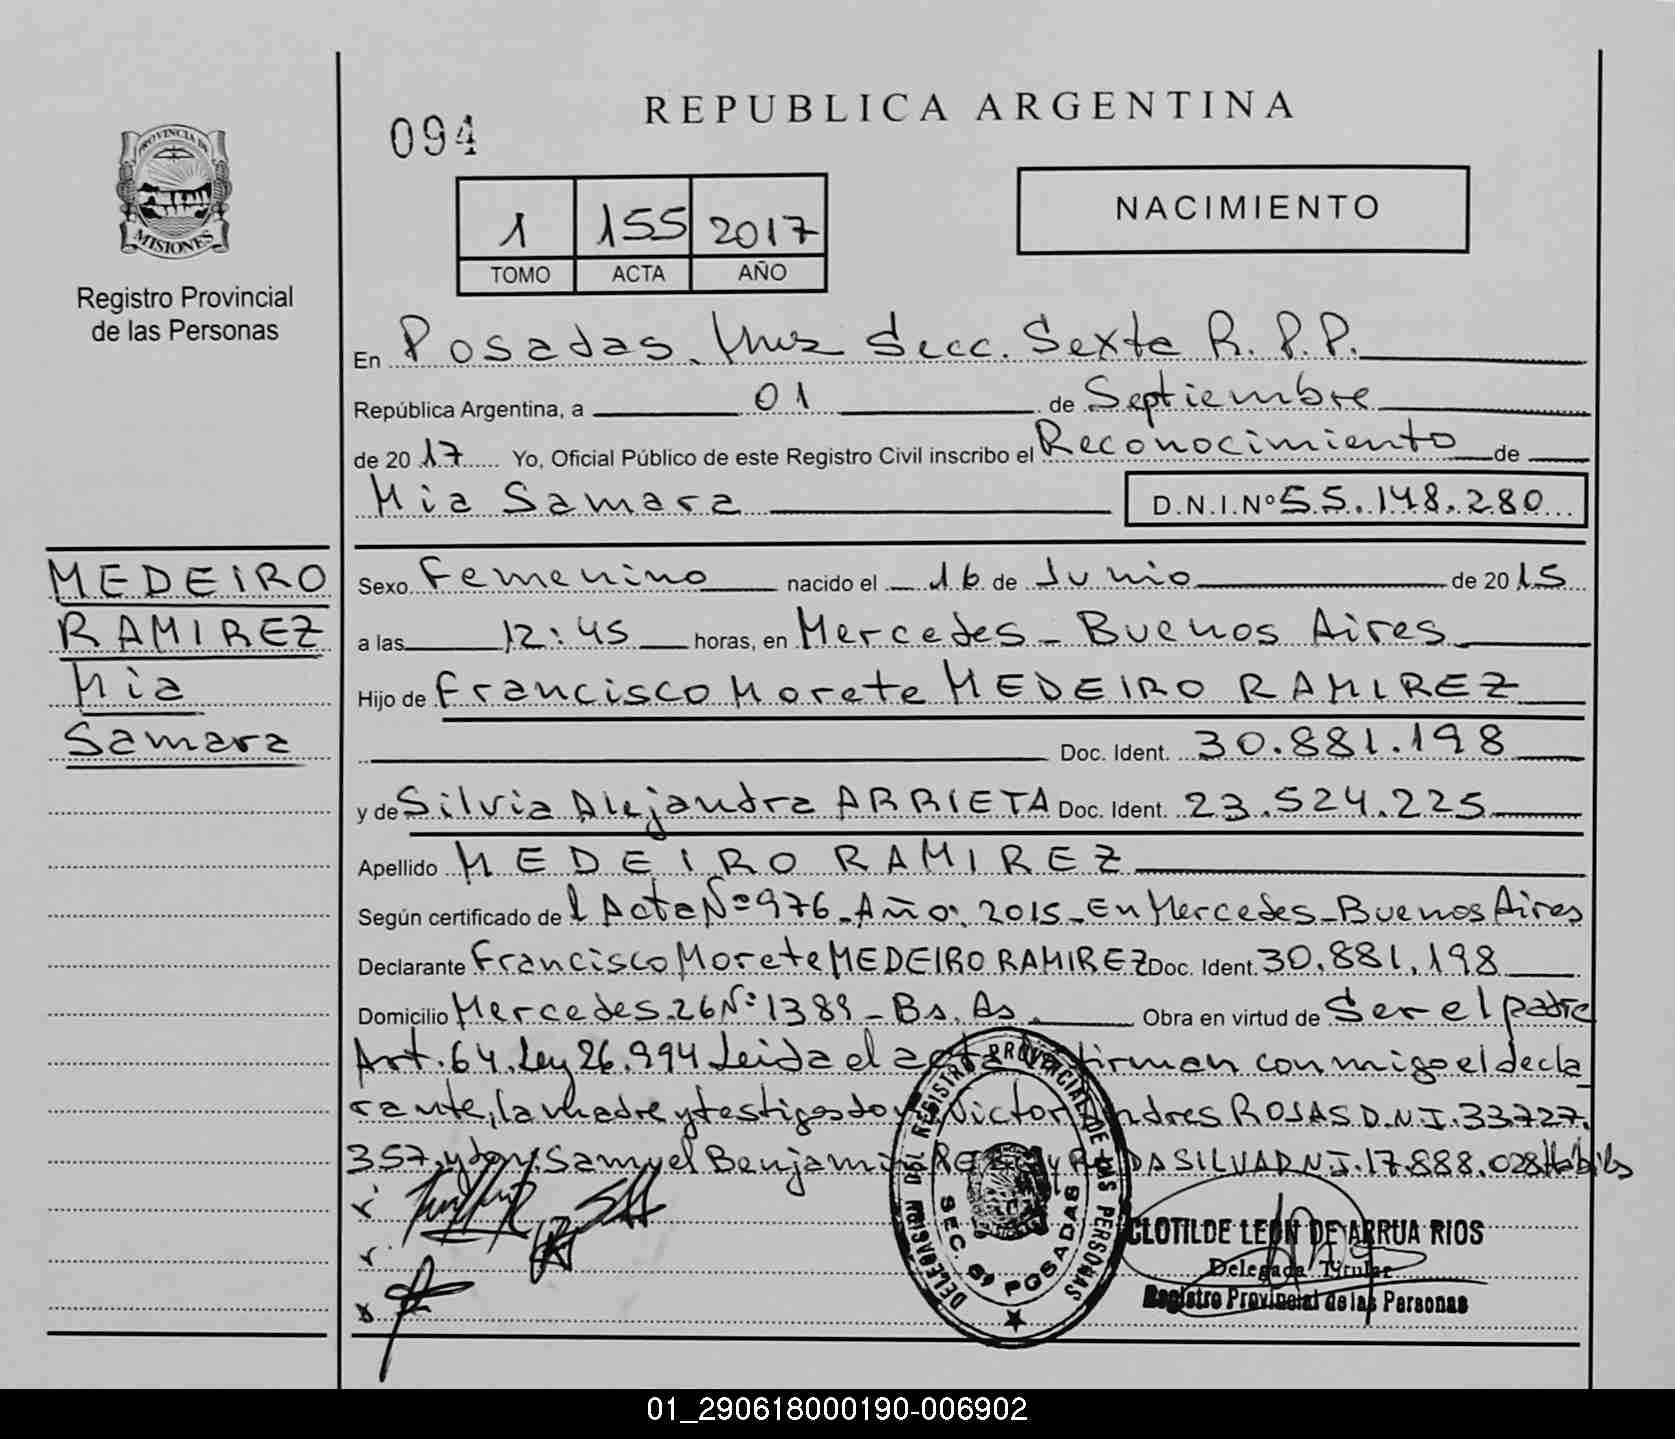 REPUBLICA ARGENTINA
094
PROVINCIA DE
MISIONES
Registro Provincial
de las Personas
1 155 2017
TOMO ACTA AÑO
NACIMIENTO
En Posadas. Mnes Secc. Sexta R. P. P.
República Argentina, a 01 de Septiembre
de 2017 Yo, Oficial Público de este Registro Civil inscribo el Reconocimiento de
Mia Samara D.N.I.Nº 55.148.280
MEDEIRO
RAMIREZ
Mia
Samara
Sexo Femenino nacido el 16 de Junio de 2015
a las 12:45 horas, en Mercedes - Buenos Aires
Hijo de Francisco Morete MEDEIRO RAMIREZ
Doc. Ident. 30.881.198
y de Silvia Alejandra ARRIETA Doc. Ident. 23.524.225
Apellido MEDEIRO RAMIREZ
Según certificado de l Acta Nº 976 - Año: 2015 - En Mercedes - Buenos Aires
Declarante Francisco Morete MEDEIRO RAMIREZ Doc. Ident. 30.881.198
Domicilio Mercedes. 26 Nº 1389 - Bs. As. Obra en virtud de Ser el padre
Art. 64. Ley 26.994 Leida el acta firman conmigo el decla
rante, la madre y testigos don Victor Andres ROJAS D.N.I. 33.727.
357. y don. Samuel Benjamin DA SILVA D.N.I. 17.888.028 Habiles
DELEGACION DEL REGISTRO PROVINCIAL DE LAS PERSONAS
SEC. 6ª POSADAS
CLOTILDE LEON DE ARRUA RIOS
Delegada Titular
Registro Provincial de las Personas
01_290618000190-006902